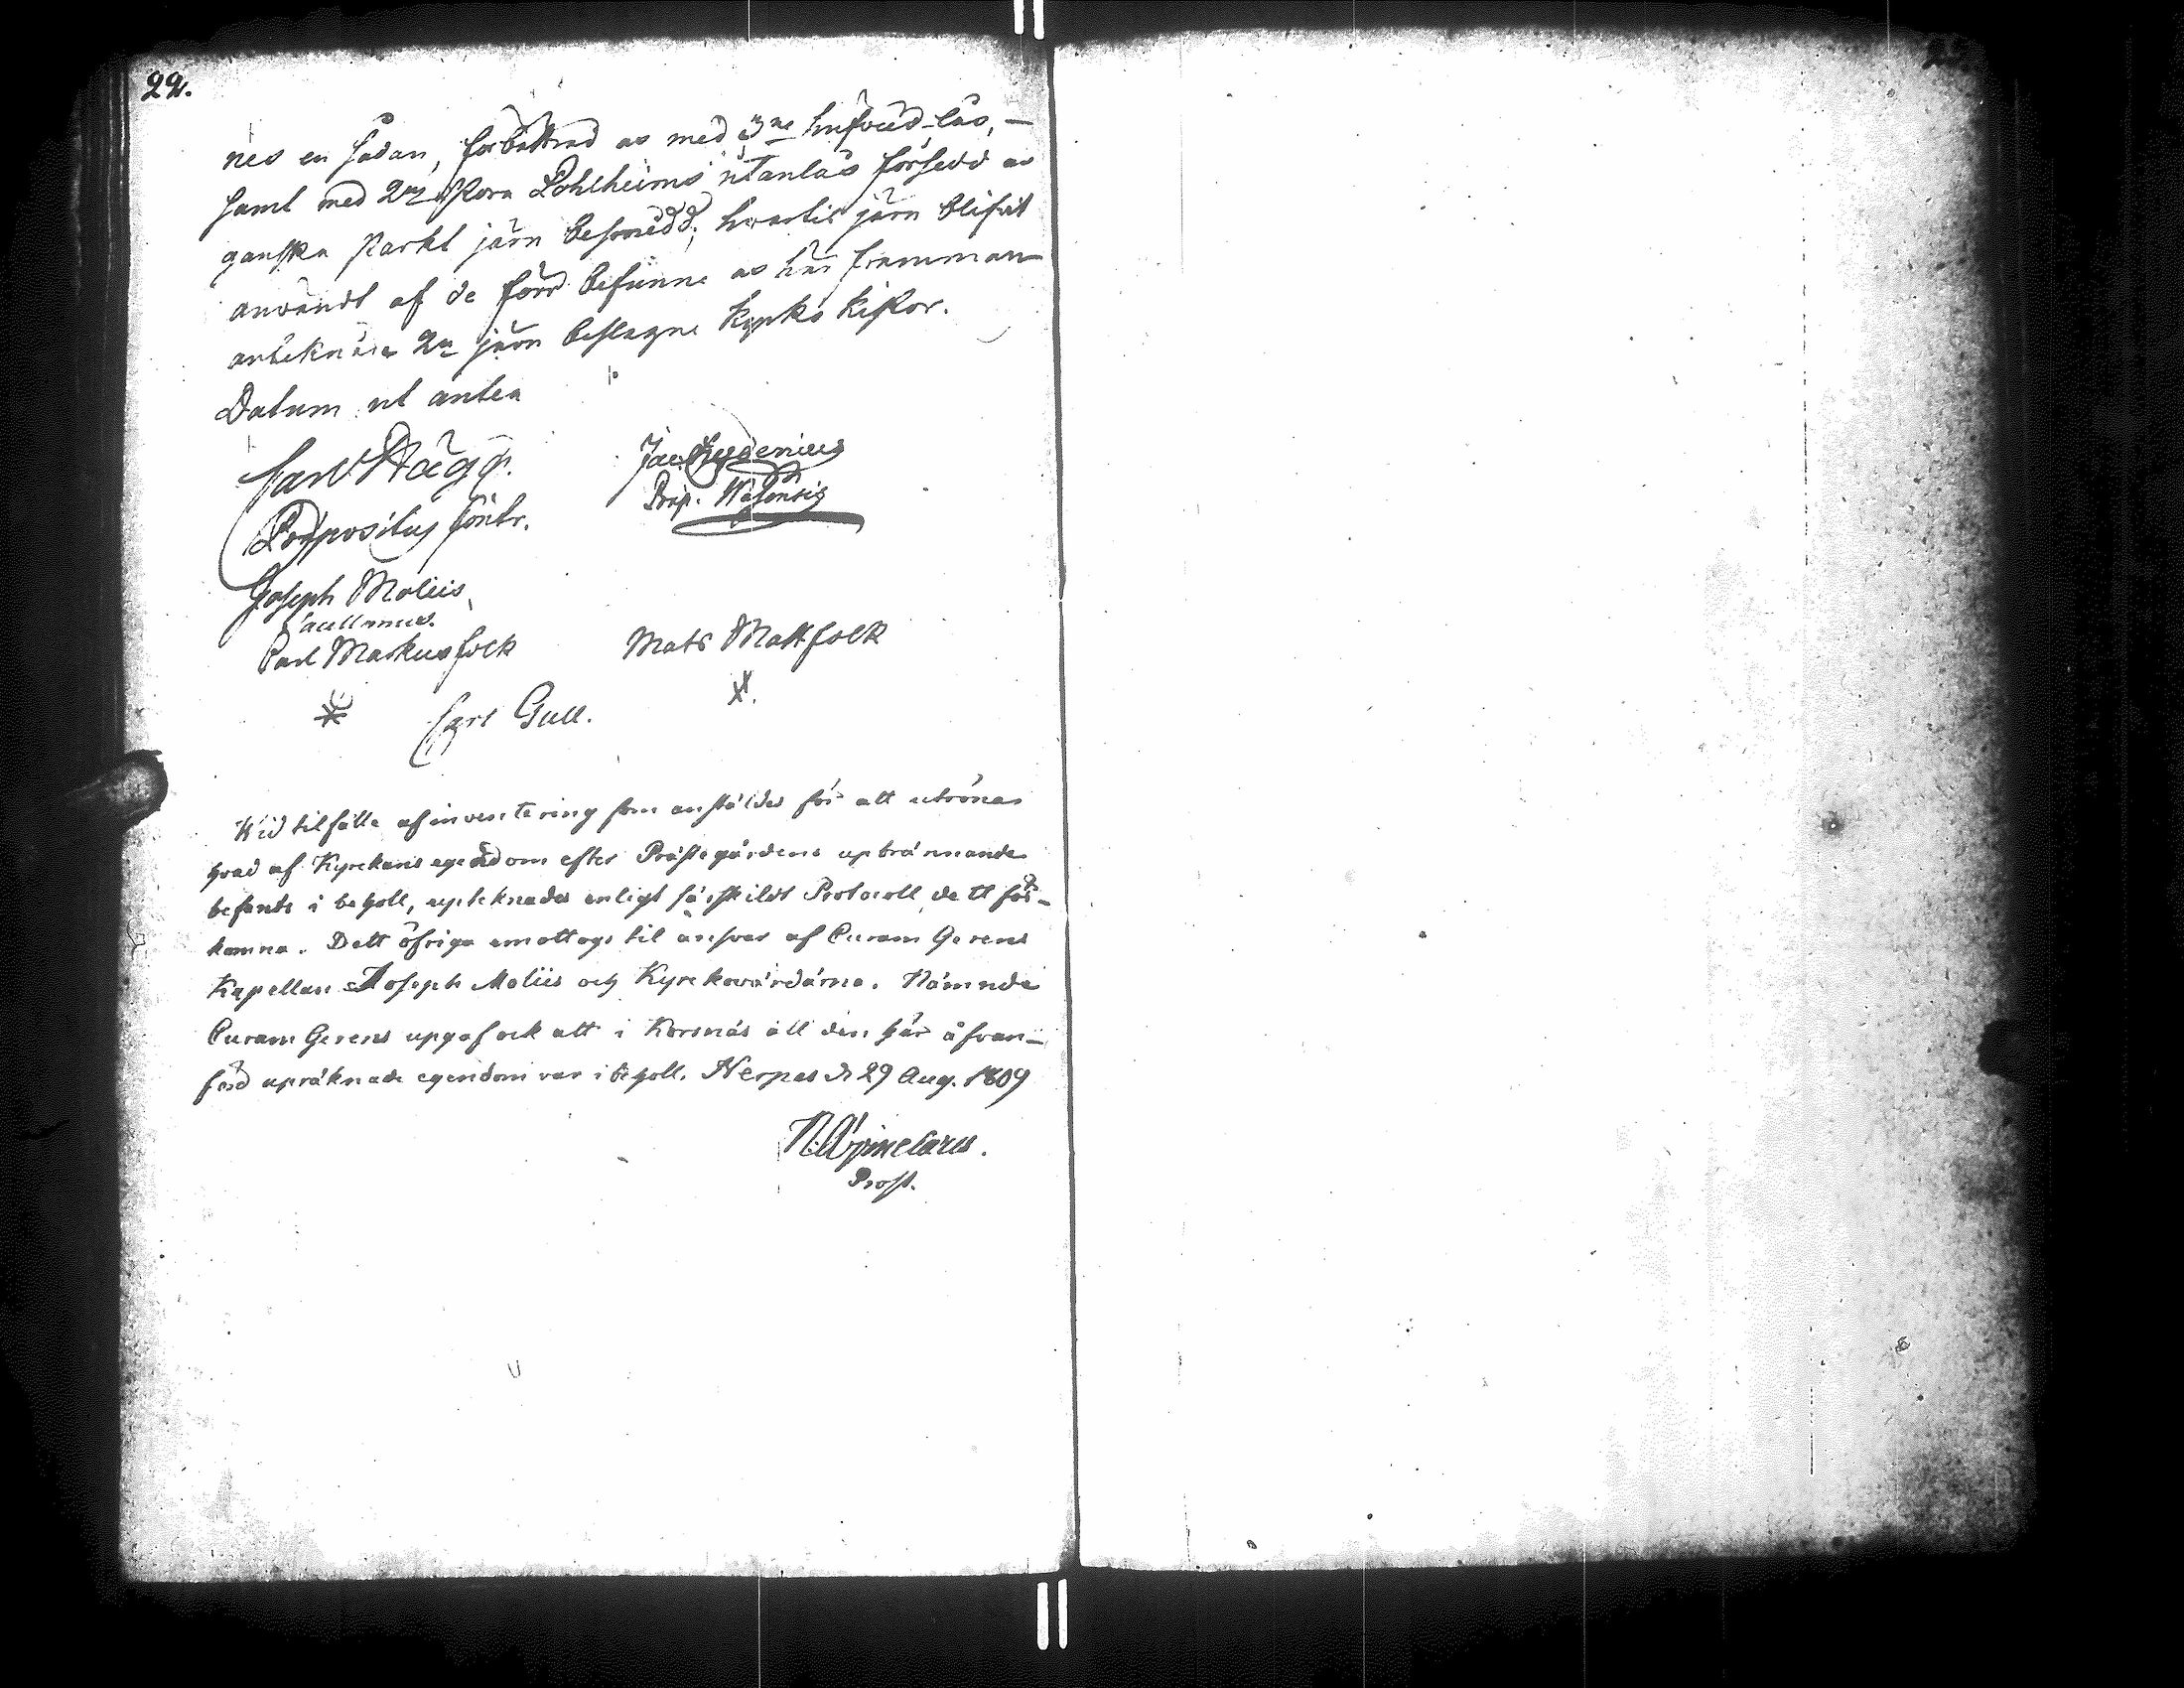 22.
nes en sådan, förbättrad as med 3ne hufvud-lås, —
samt med 2ne stora Polhheims utanlås försedd as
ganska starkt järn besmidd; hvartil järn blifvit
användt af de förr befunne as här framman
antecknade 2ne järn beslagne kyrko kistor.
Datum ut antea
Carl Hägg.
Jac. Gydenius
Præpositus Contr.
Præp. Wasensis
Joseph Moliis
Sacellanus.
Carl Markusfolk
Mats Mattfolk
Carl Gull.
Wid tilfälle af inventering som anstäldes för att utrönas
hvad af Kyrckans egendom efter Prästegårdens upbrännande
befants i behåll, uptecknades enligt särskildt Protocoll dett för-
komna. Dett öfriga emottogs til ansvar af Curam Gerens
Kapellan Joseph Moliis och Kyrckovärdarna. Nämnde
Curam Gerens upgaf ock att i Korsnäs all den här åfvan-
förd upräknade egendom var i behåll. Nerpes d. 29 Aug. 1809
N. Aejmelæus.
Prost.